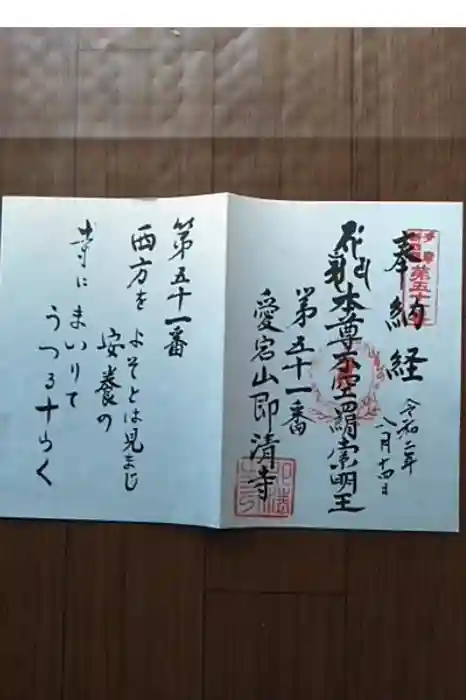 奉納経
令和二年
八月十四日
本尊不空羂索明王
第五十一番
愛宕山即清寺
第五十一番
西方を よそとは見まじ
安養の
寺に まいりて
うつる十らく